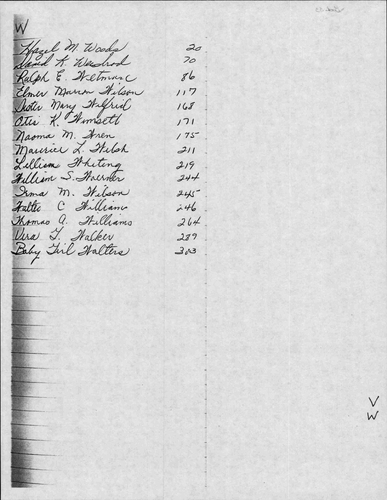 W
Hazel M. Woods 20
David K. Woodrod 70
Ralph E. Wetmarc 86
Elmer Marion Wilson 117
Sister Mary Wilfrid 168
Otis K. Wimsett 171
Naoma M. Wren 175
Maurice L. Welsh 211
Lillian Whiting 219
William S. Woerner 244
Irma M. Wilson 245
Walter C William 246
Thomas A. Williams 264
Vera T. Walker 289
Baby Girl Walters 303
V
W